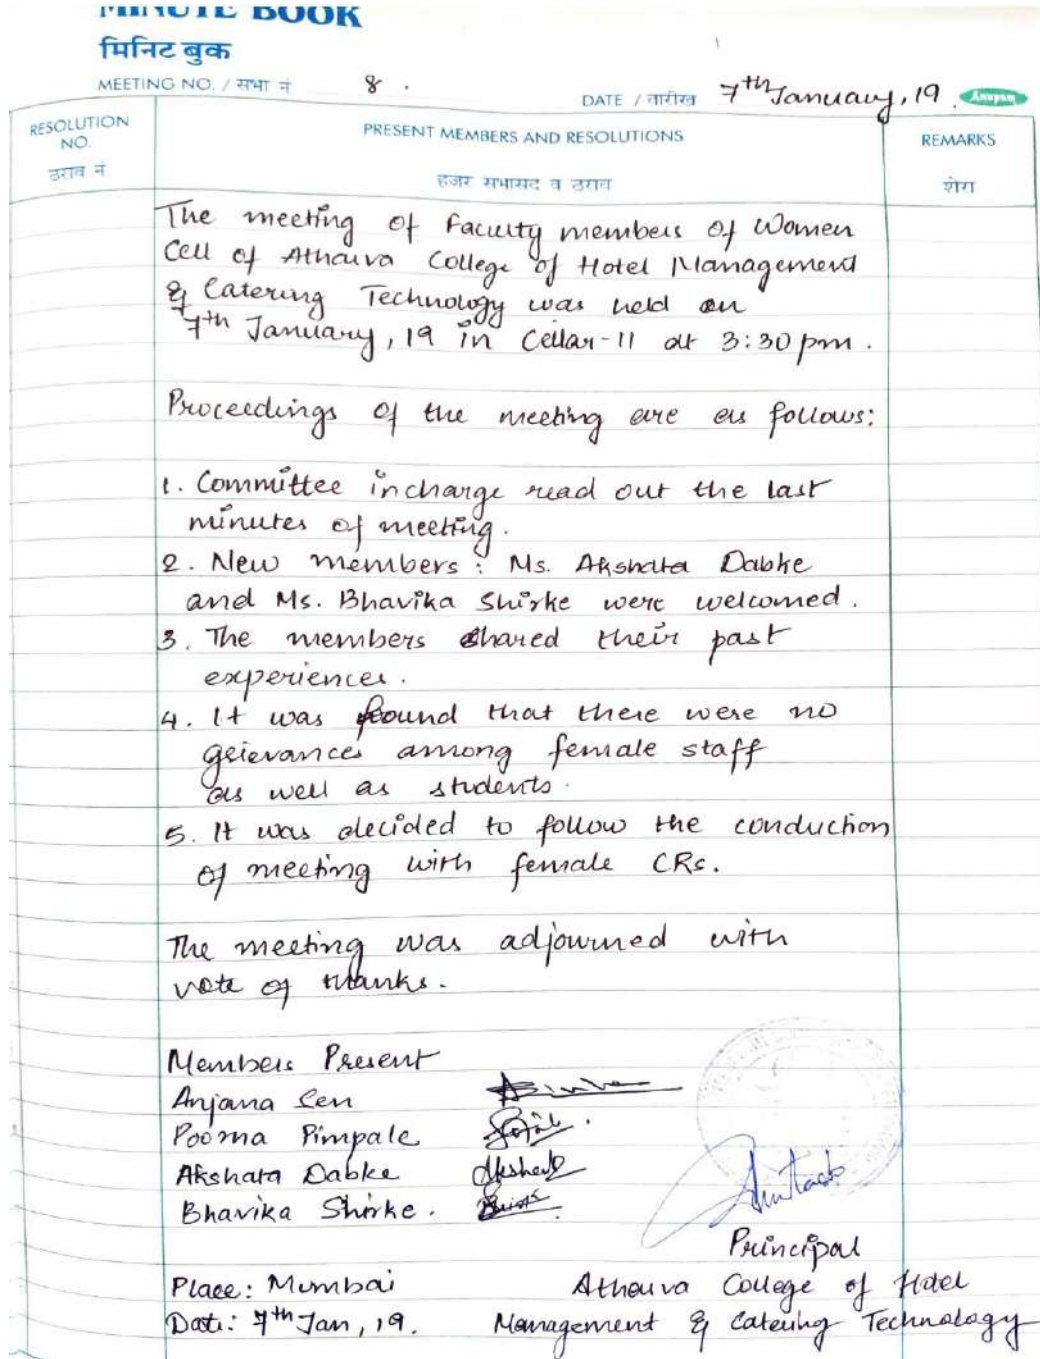 MINUTE BOOK
मिनिट बुक
MEETING NO. / सभा नं 8.
DATE / तारीख 7th January, 19. Anupam
RESOLUTION NO. ठराव नं
PRESENT MEMBERS AND RESOLUTIONS हजर सभासद व ठराव
REMARKS शेरा
The meeting of Faculty members of Women
Cell of Atharva College of Hotel Management
& Catering Technology was held on
7th January, 19 in Cellar-11 at 3:30 pm.
Proceedings of the meeting are as follows:
1. Committee incharge read out the last
minutes of meeting.
2. New members: Ms. Akshata Dabke
and Ms. Bhavika Shirke were welcomed.
3. The members shared their past
experiences.
4. It was found that there were no
grievances among female staff
as well as students.
5. It was decided to follow the conduction
of meeting with female CRs.
The meeting was adjourned with
vote of thanks.
Members Present
Anjana Sen
Poorna Pimpale
Akshata Dabke
Bhavika Shirke.
Principal
Place: Mumbai Atharva College of Hotel
Date: 7th Jan, 19. Management & Catering Technology